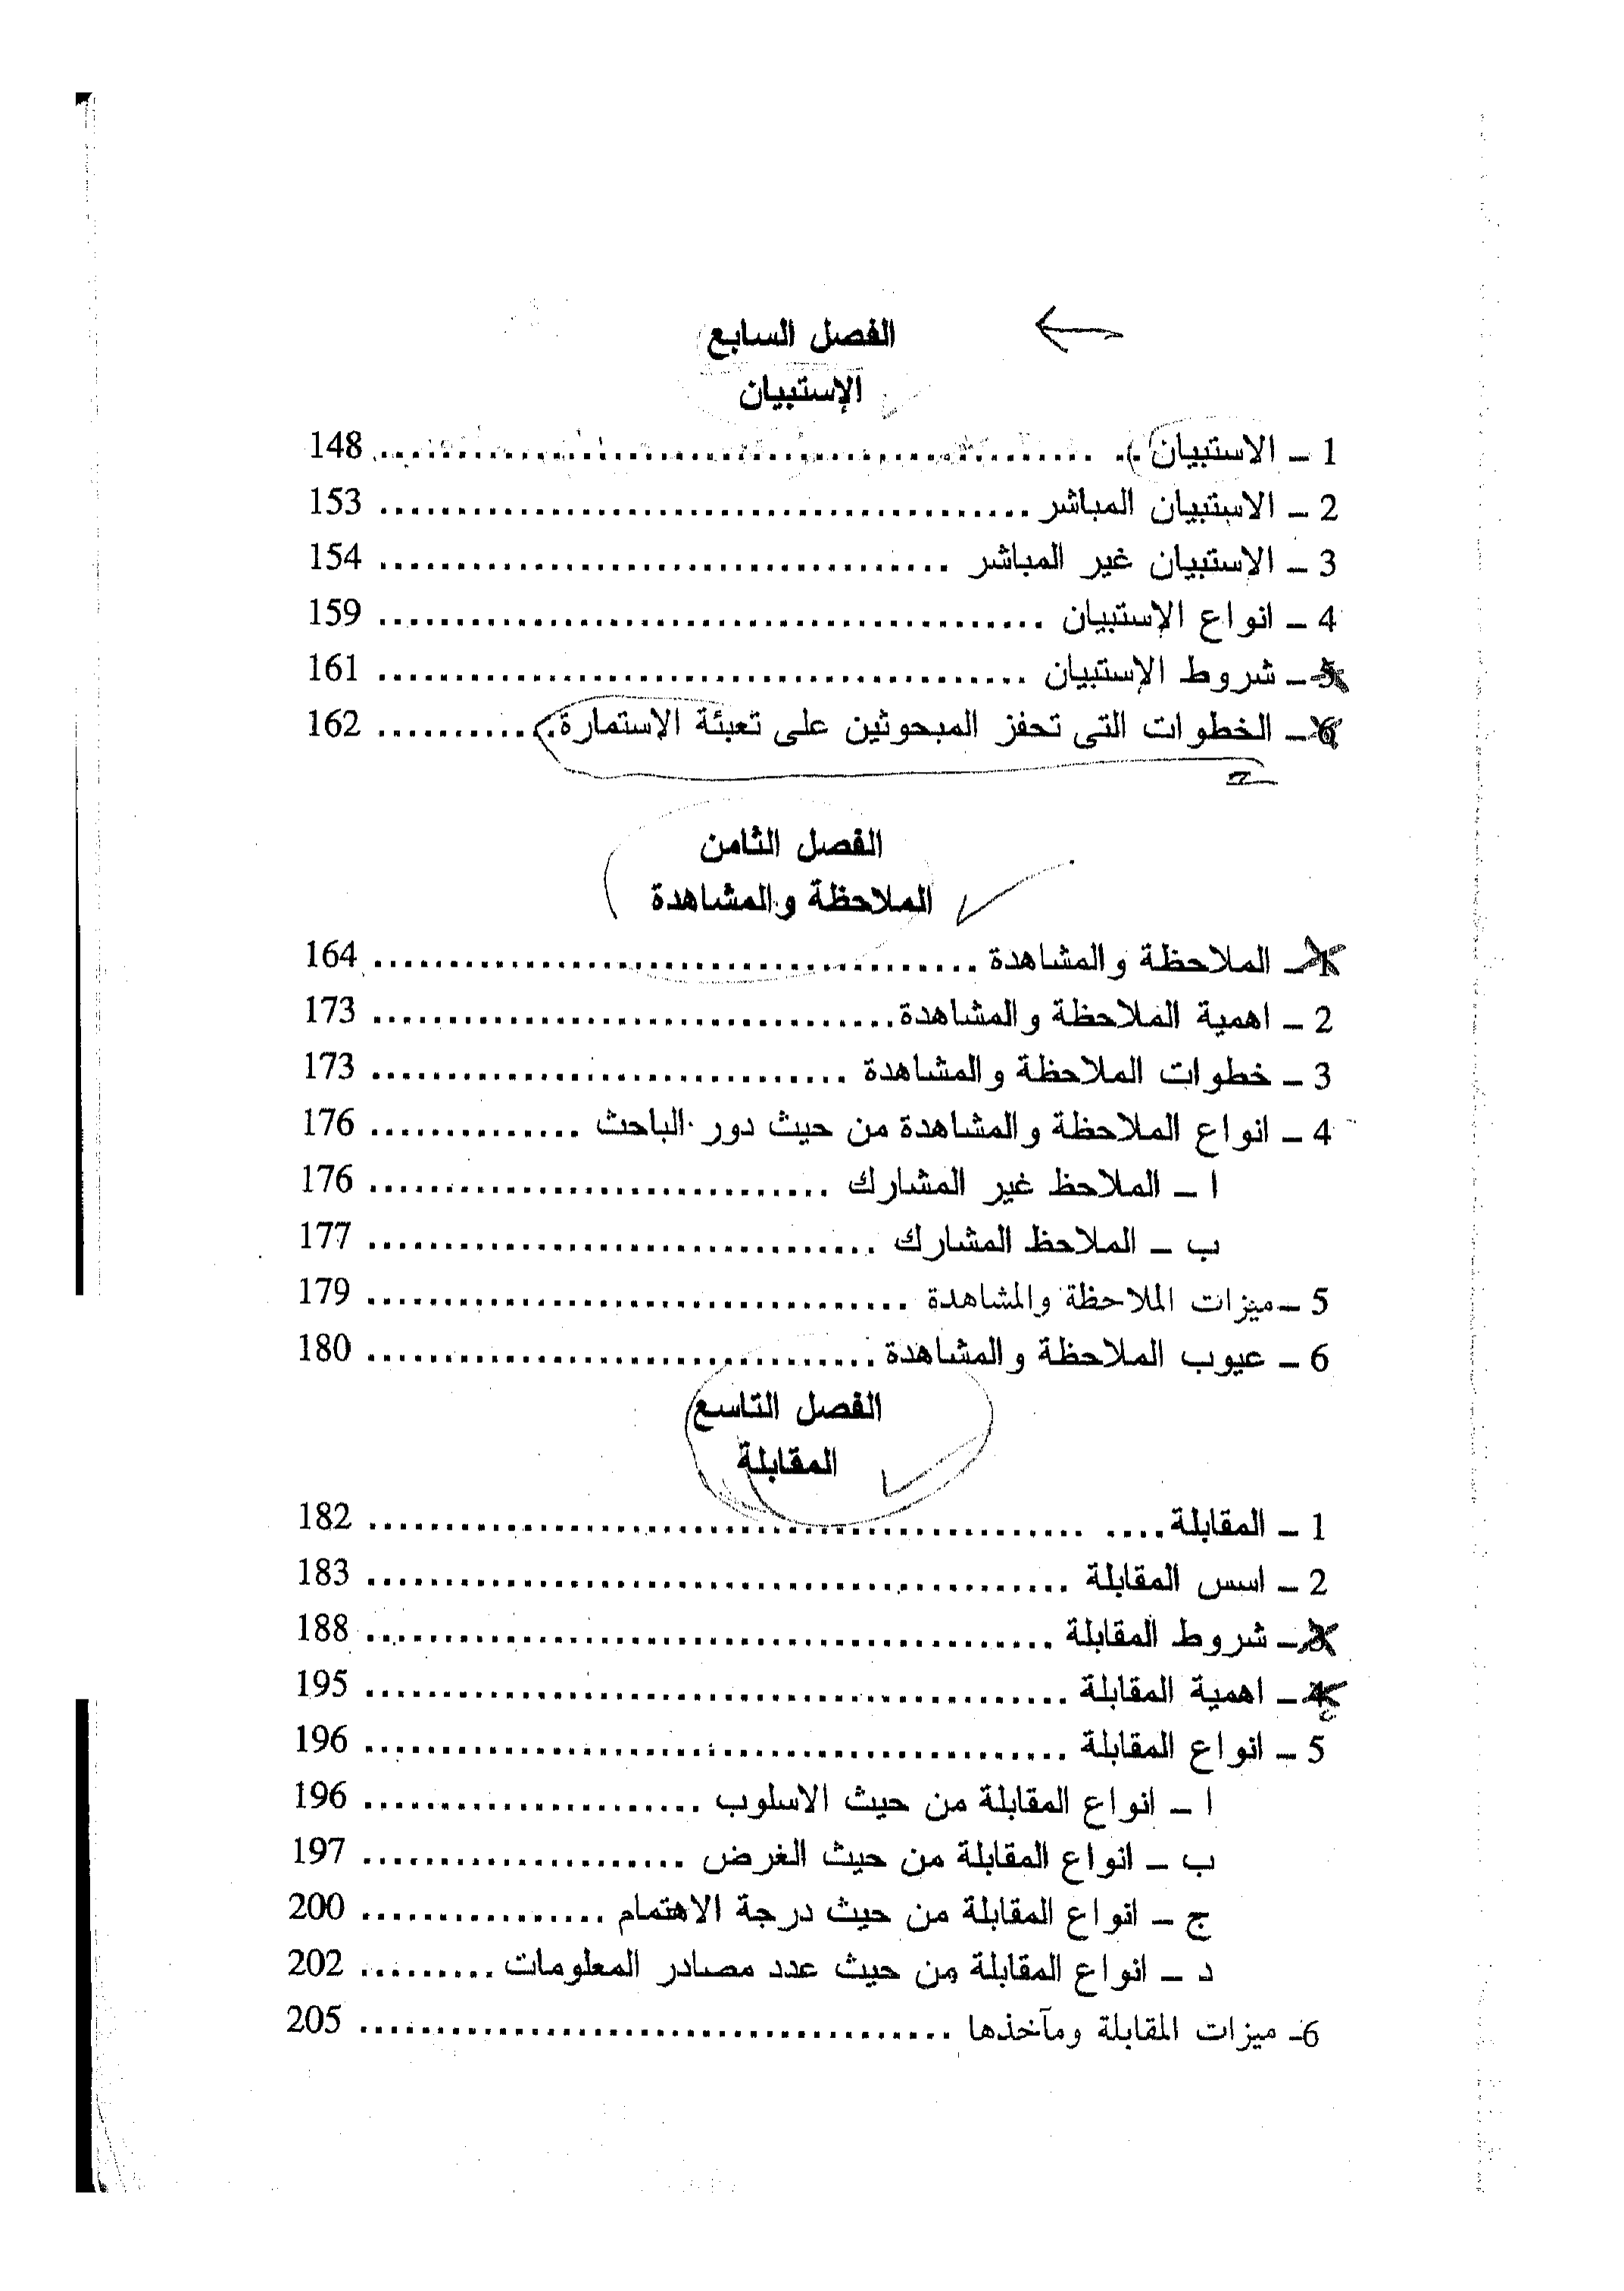 الفصل السابع
الإستبيان
1 – الاستبيان .................................................. 148
2 – الاستبيان المباشر ........................................... 153
3 – الإستبيان غير المباشر ...................................... 154
4 – انواع الإستبيان ............................................ 159
5 – شروط الإستبيان ........................................... 161
6 – الخطوات التى تحفز المبحوثين على تعبئة الاستمارة ............ 162
الفصل الثامن
الملاحظة والمشاهدة
1 – الملاحظة والمشاهدة ........................................ 164
2 – اهمية الملاحظة والمشاهدة .................................. 173
3 – خطوات الملاحظة والمشاهدة ................................ 173
4 – انواع الملاحظة والمشاهدة من حيث دور الباحث .............. 176
ا – الملاحظ غير المشارك .............................. 176
ب – الملاحظ المشارك ................................. 177
5 – ميزات الملاحظة والمشاهدة ................................... 179
6 – عيوب الملاحظة والمشاهدة ................................. 180
الفصل التاسع
المقابلة
1 – المقابلة .................................................. 182
2 – اسس المقابلة .............................................. 183
3 – شروط المقابلة ............................................. 188
4 – اهمية المقابلة .............................................. 195
5 – انواع المقابلة .............................................. 196
ا – انواع المقابلة من حيث الاسلوب ...................... 196
ب – انواع المقابلة من حيث الغرض ..................... 197
ج – انواع المقابلة من حيث درجة الاهتمام ................ 200
د – انواع المقابلة من حيث عدد مصادر المعلومات ......... 202
6- ميزات المقابلة ومآخذها ...................................... 205